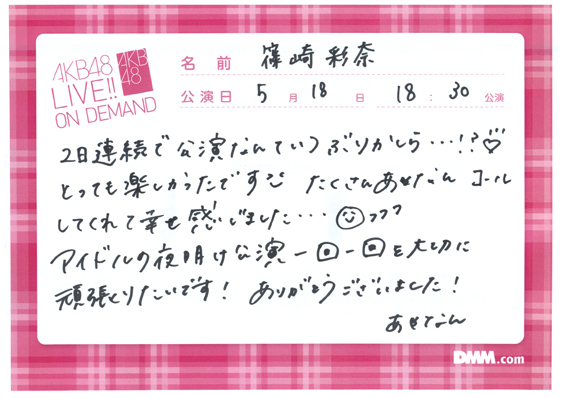 AKB48
LIVE!!
ON DEMAND
AKB
48
名前 篠崎彩奈
公演日 5月18日 18:30公演
2日連続で公演なんていつぶりかしら…!?♡
とっても楽しかったです たくさんあやなん コール
してくれて幸せ感じました…
アイドルの夜明け公演一回一回を大切に
頑張りたいです! ありがとうございました!
あやなん
DMM.com